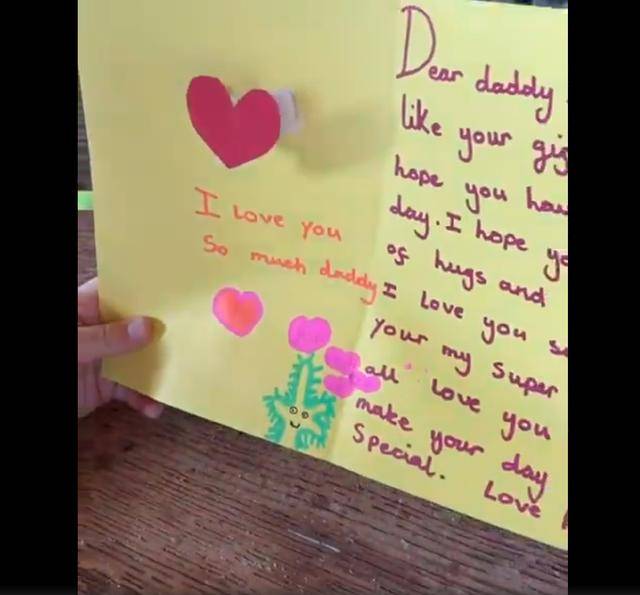 I Love you
So much daddy
Dear daddy
like your
hope you
day. I hope
of hugs and
I love you
your my super
all love you
make your day
Special. Love